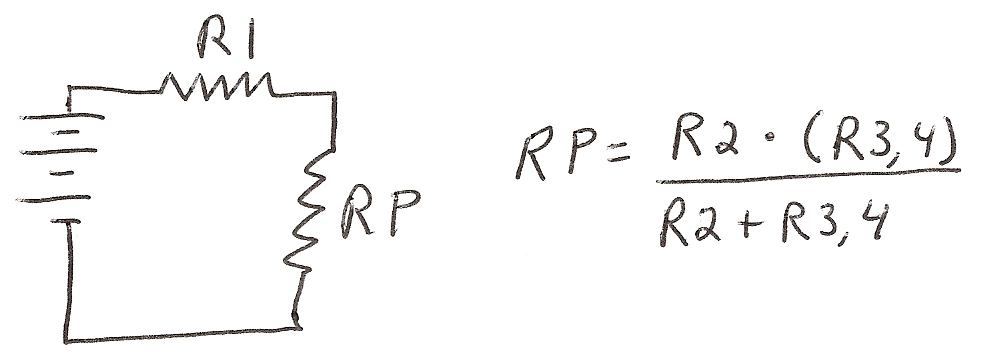 R1
RP
RP = R2 · (R3,4)
R2 + R3,4